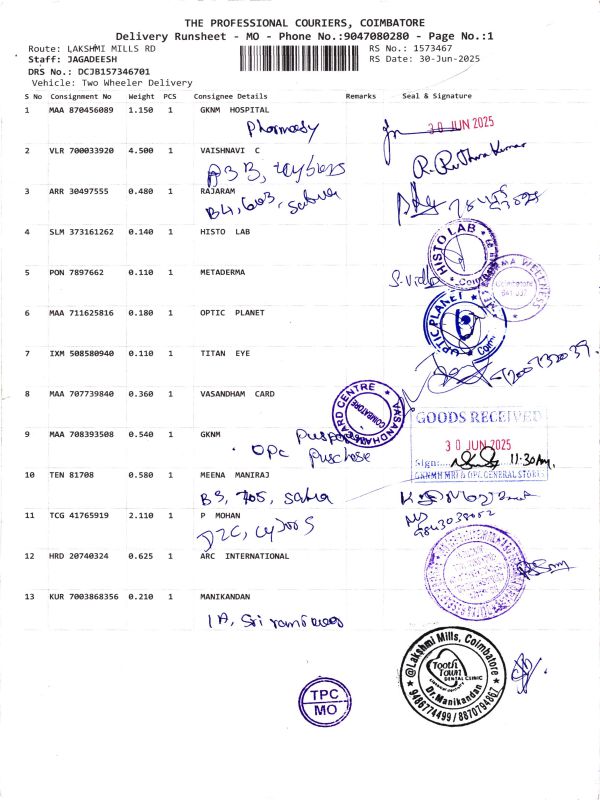 THE PROFESSIONAL COURIERS, COIMBATORE
Delivery Runsheet - MO - Phone No.:9047080280 - Page No.:1
Route: LAKSHMI MILLS RD RS No.: 1573467
Staff: JAGADEESH RS Date: 30-Jun-2025
DRS No.: DCJB157346701
Vehicle: Two Wheeler Delivery
S No Consignment No Weight PCS Consignee Details Remarks Seal & Signature
1 MAA 870456089 1.150 1 GKNM HOSPITAL
Pharmacy 30 JUN 2025
2 VLR 700033920 4.500 1 VAISHNAVI C
3 ARR 30497555 0.480 1 RAJARAM
B4, 603, Sabha
4 SLM 373161262 0.140 1 HISTO LAB
HISTO LAB
5 PON 7897662 0.110 1 METADERMA
6 MAA 711625816 0.180 1 OPTIC PLANET
OPTIC PLANET
7 IXM 508580940 0.110 1 TITAN EYE
8 MAA 707739840 0.360 1 VASANDHAM CARD
VASANDHAM CARD CENTRE COIMBATORE
GOODS RECEIVED
9 MAA 708393508 0.540 1 GKNM
30 JUN 2025
OPC Puschase
Sign: 11.30 Am.
GKNMH MRI & OPC GENERAL STORES
10 TEN 81708 0.580 1 MEENA MANIRAJ
B3, 705, Sabha
11 TCG 41765919 2.110 1 P MOHAN
12 HRD 20740324 0.625 1 ARC INTERNATIONAL
13 KUR 7003868356 0.210 1 MANIKANDAN
1A, Sri
@Lakshmi Mills, Coimbatore
Tooth Town
DENTAL CLINIC
Dr.Manikandan
9486774499 / 8870794867
TPC
MO